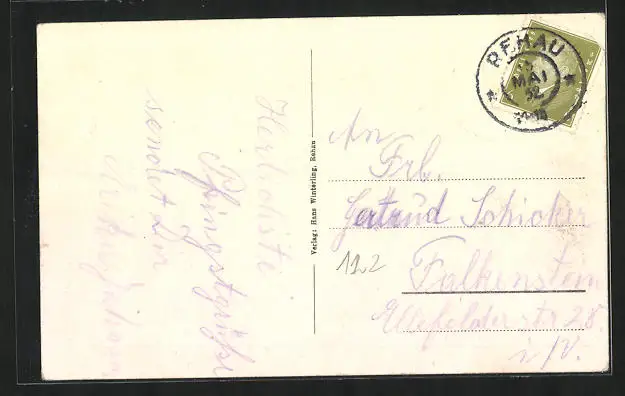 Herzlichste
Pfingstgrüße
sendet Dir
Verlag: Hans Winterling, Rehau
REHAU
MAI
32
An
Frl.
Gertrud Schicker
122
Falkenstein
Ellefelder-str 28.
i/V.